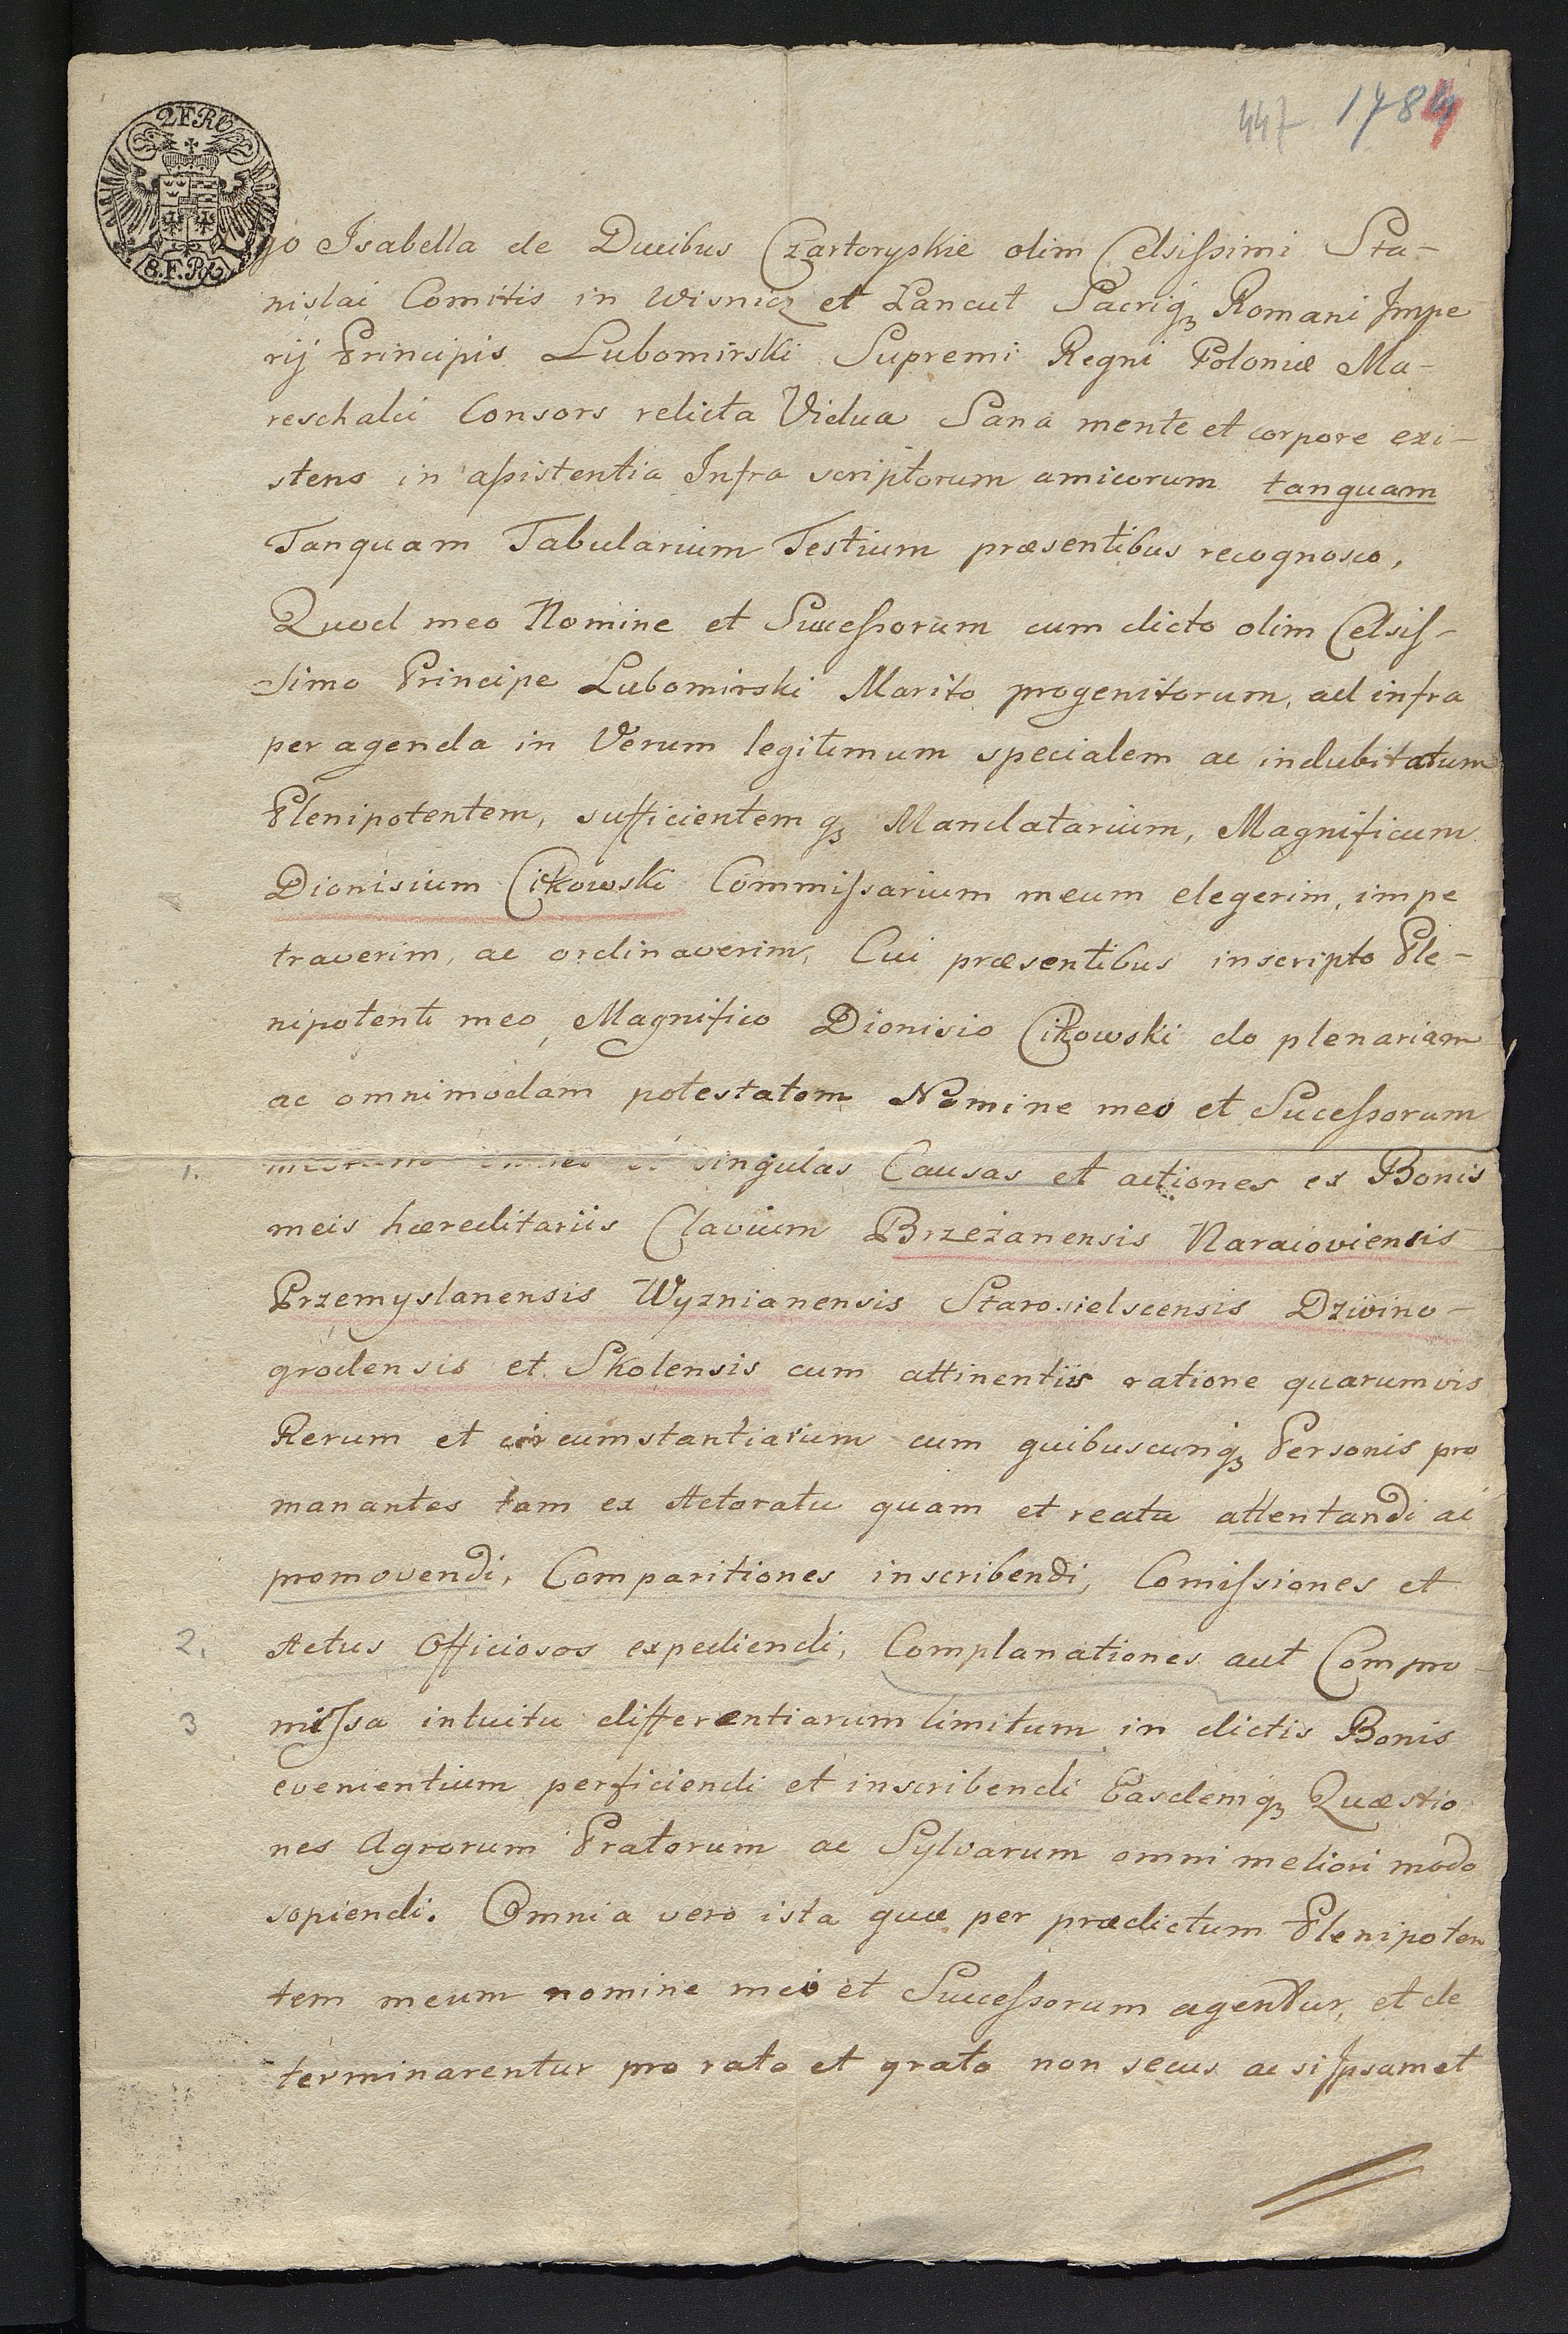 2FRO
8.F.Rh
447 1784
go Isabella de Ducibus Czartoryskie olim Celsissimi Sta-
nislai Comitis in Wisnicz et Lancut Sacriq₃ Romani Impe
rij Principis Lubomirski Supremi Regni Poloniæ Ma-
reschalci Consors relicta Vidua Sana mente et corpore exi-
stens in assistentia Infra scriptorum amicorum tanquam
Tanquam Tabularium Testium præsentibus recognosco,
Quod meo Nomine et Successorum cum dicto olim Celsis-
simo Principe Lubomirski Marito progenitorum, ad infra
per agenda in Verum legitimum specialem ac indubitatum
Plenipotentem, sufficientem q₃ Mandatarium, Magnificum
Dionisium Cikowski Commissarium meum elegerim, impe
traverim, ac ordinaverim, Cui præsentibus inscripto Ple-
nipotenti meo, Magnifico Dionisio Cikowski do plenariam
ac omnimodam potestatem Nomine meo et Sucessorum
1. singulas Causas et actiones ex Bonis
meis hæreditariis Clavium Brzeżanensis Naraioviensis
Przemyslanensis Wyznianensis Starosielscensis Dzwino-
grodensis et Skolensis cum attinentiis ratione quarumvis
Rerum et circumstantiarum cum quibuscunq₃ Personis pro
manantes tam ex Actoratu quam et reatu attentandi ac
promovendi, Comparitiones inscribendi, Comissiones et
2. Actus Officiosos expediendi, Complanationes aut Compro-
3 missa intuitu differentiarum limitum in dictis Bonis
evenientium perficiendi et inscribendi Easdemq₃ Quæstio
nes Agrorum Pratorum ac Sylvarum omni meliori modo
sopiendi. Omnia vero ista quæ per prædictum Plenipoten
tem meum nomine meo et Successorum agentur, et de
terminarentur pro rato et grato non secus ac si Ipsamet